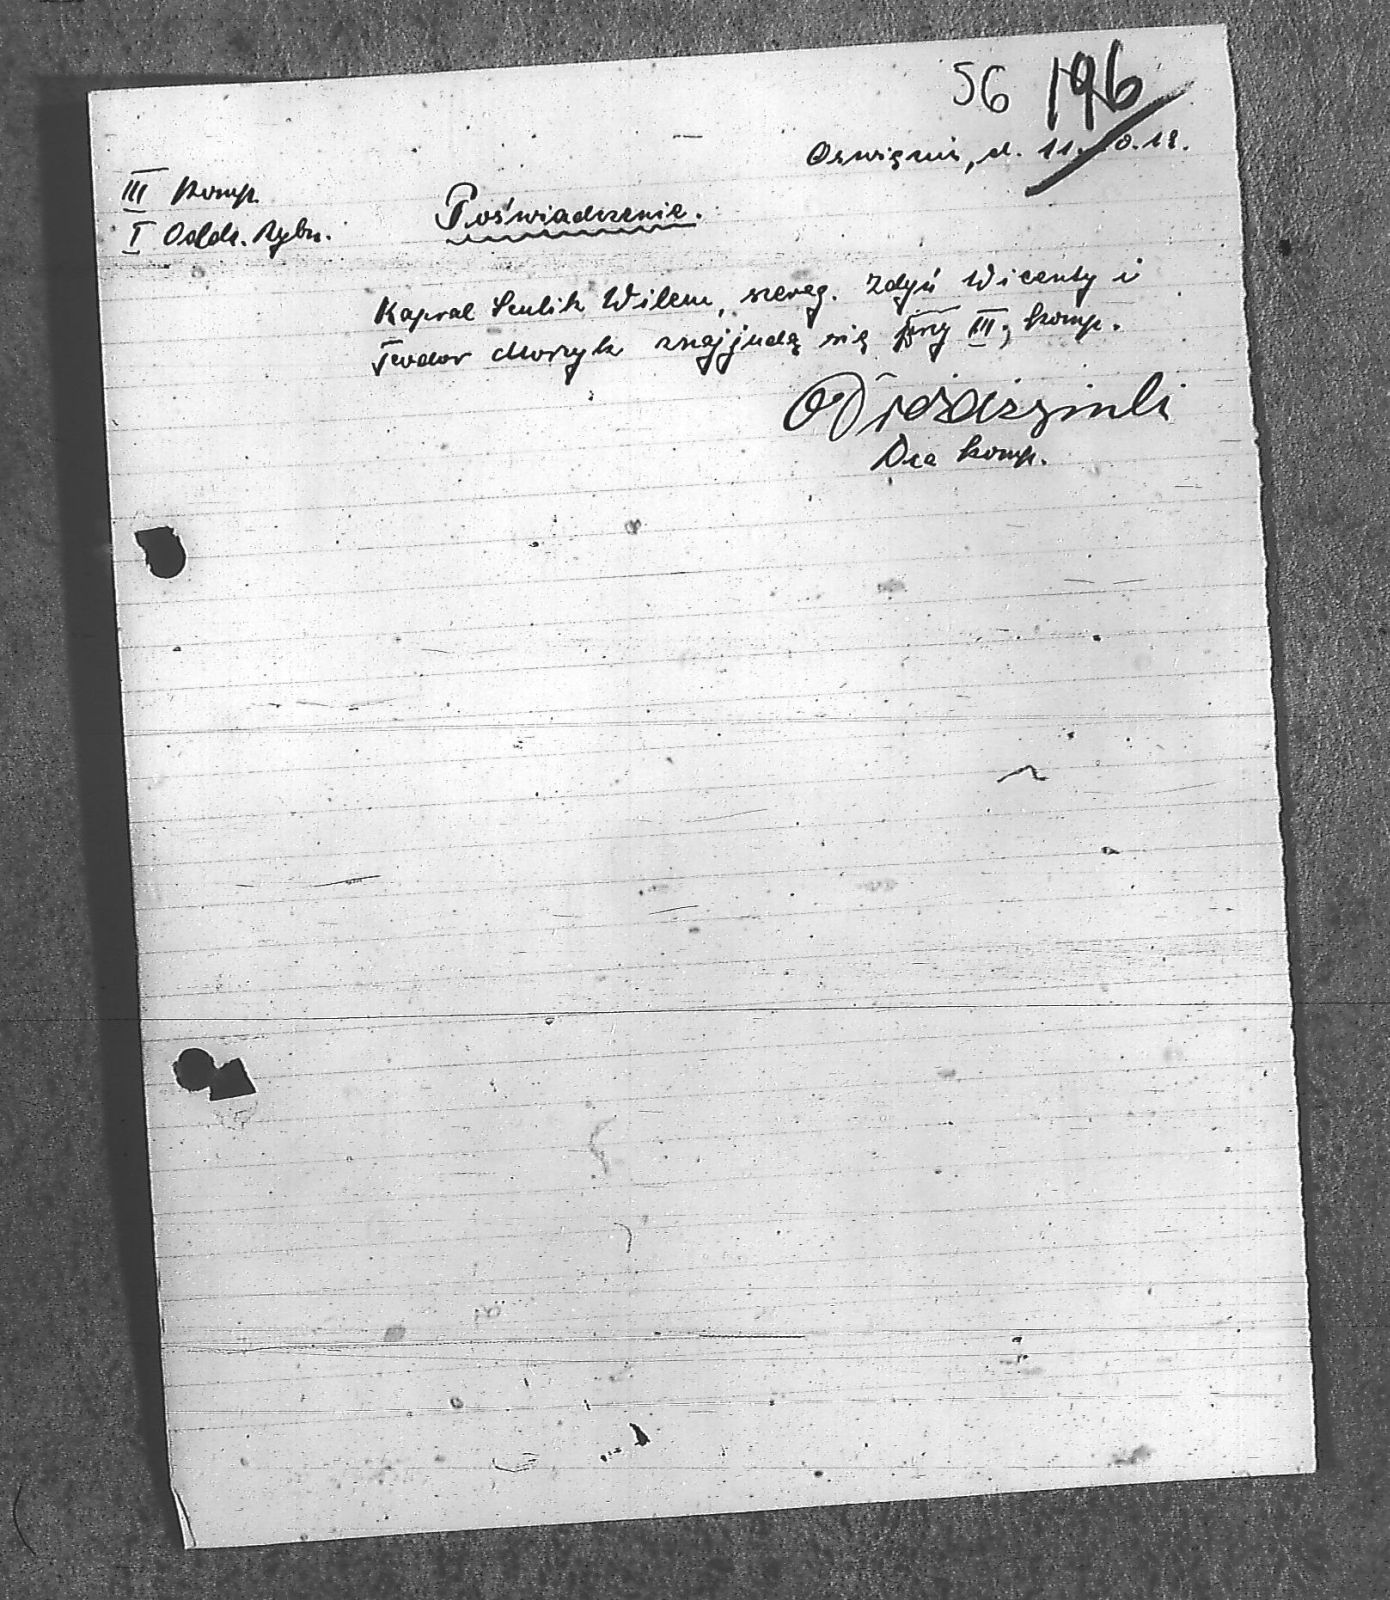 56 196
Oswięcim, d. 11. 10. 19.
III komp.
I Oddz. Rybn.
Poświadczenie.
Kapral Szulik Wilem, szereg. Zdyń Wicenty i
Teodor znajjudą się przy III, komp.
Dca komp.